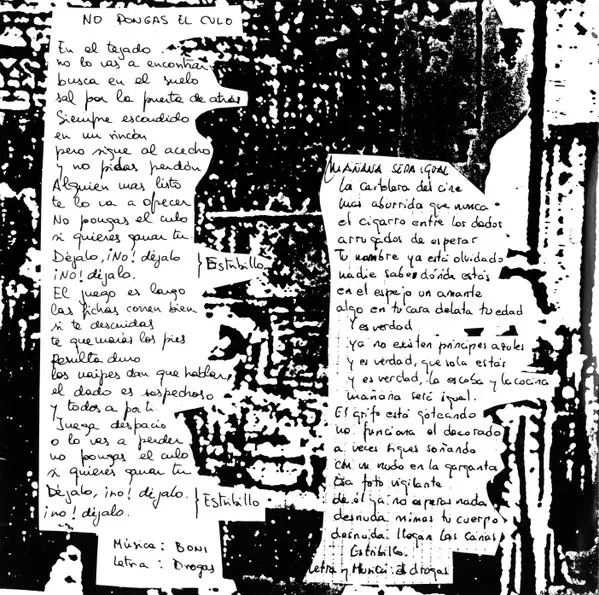 NO PONGAS EL CULO
En el tejado
no lo vas a encontrar
busca en el suelo
sal por la puerta de atrás
Siempre escondido
en un rincón
pero sigue al acecho
y no pidas perdón
Alguien mas listo
te lo va a ofrecer
No pongas el culo
si quieres ganar tu
Déjalo, ¡NO! déjalo
¡NO! déjalo.
Estribillo
El juego es largo
las fichas corren bien
si te descuidas
te quemarás los pies
Resulta duro
los naipes dan que hablar,
el dado es sospechoso
y todos a por ti.
Juega despacio
o lo vas a perder
no pongas el culo
si quieres ganar tu
Déjalo, ¡no! déjalo.
¡no! déjalo.
Estribillo
Música: BONI
Letra: Drogas
MAÑANA SERA IGUAL
la cartelera del cine
más aburrida que nunca
el cigarro entre los dedos
arrugados de esperar
Tu nombre ya está olvidado
nadie sabe dónde estás
en el espejo un amante
algo en tu cara delata tu edad
Y es verdad
ya no existen príncipes azules
y es verdad, que sola estás
y es verdad, la escoba y la cocina
mañana será igual.
El grifo está goteando
no funciona el decorado
a veces sigues soñando
con un nudo en la garganta
Esa foto vigilante
de él ya no esperas nada
desnuda mimas tu cuerpo
desnuda llegan las canas
Estribillo.
Letra y Música: el drogas